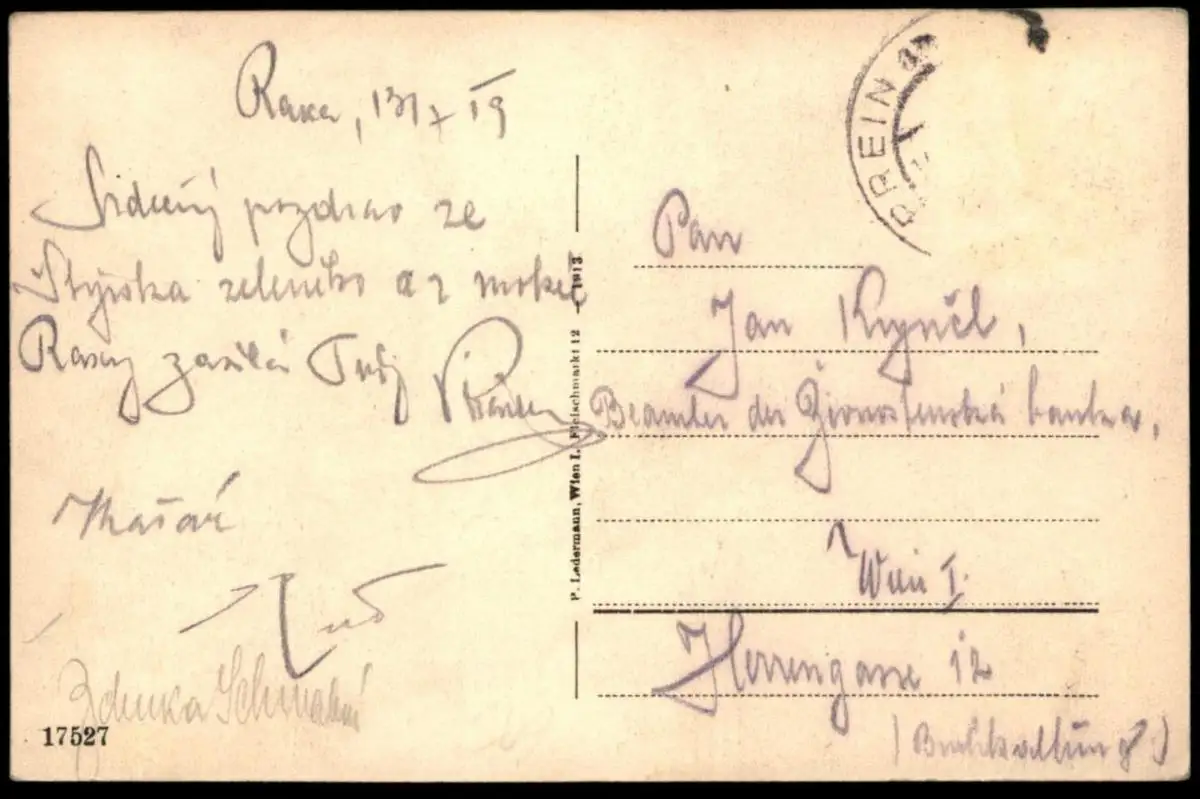 Raxa, 13/7 19
Srdečný pozdrav ze
Štýrska zeleného a z mokré
Raxy zasílá Tvůj
Zdenka
17527
P. Ledermann, Wien I. Fleischmarkt 12 — 1913
PREIN a
Pan
Jan Krynčl,
Beamter der Živnostenská banka,
Wien I.
Herrengasse 12
(Buchhaltung)